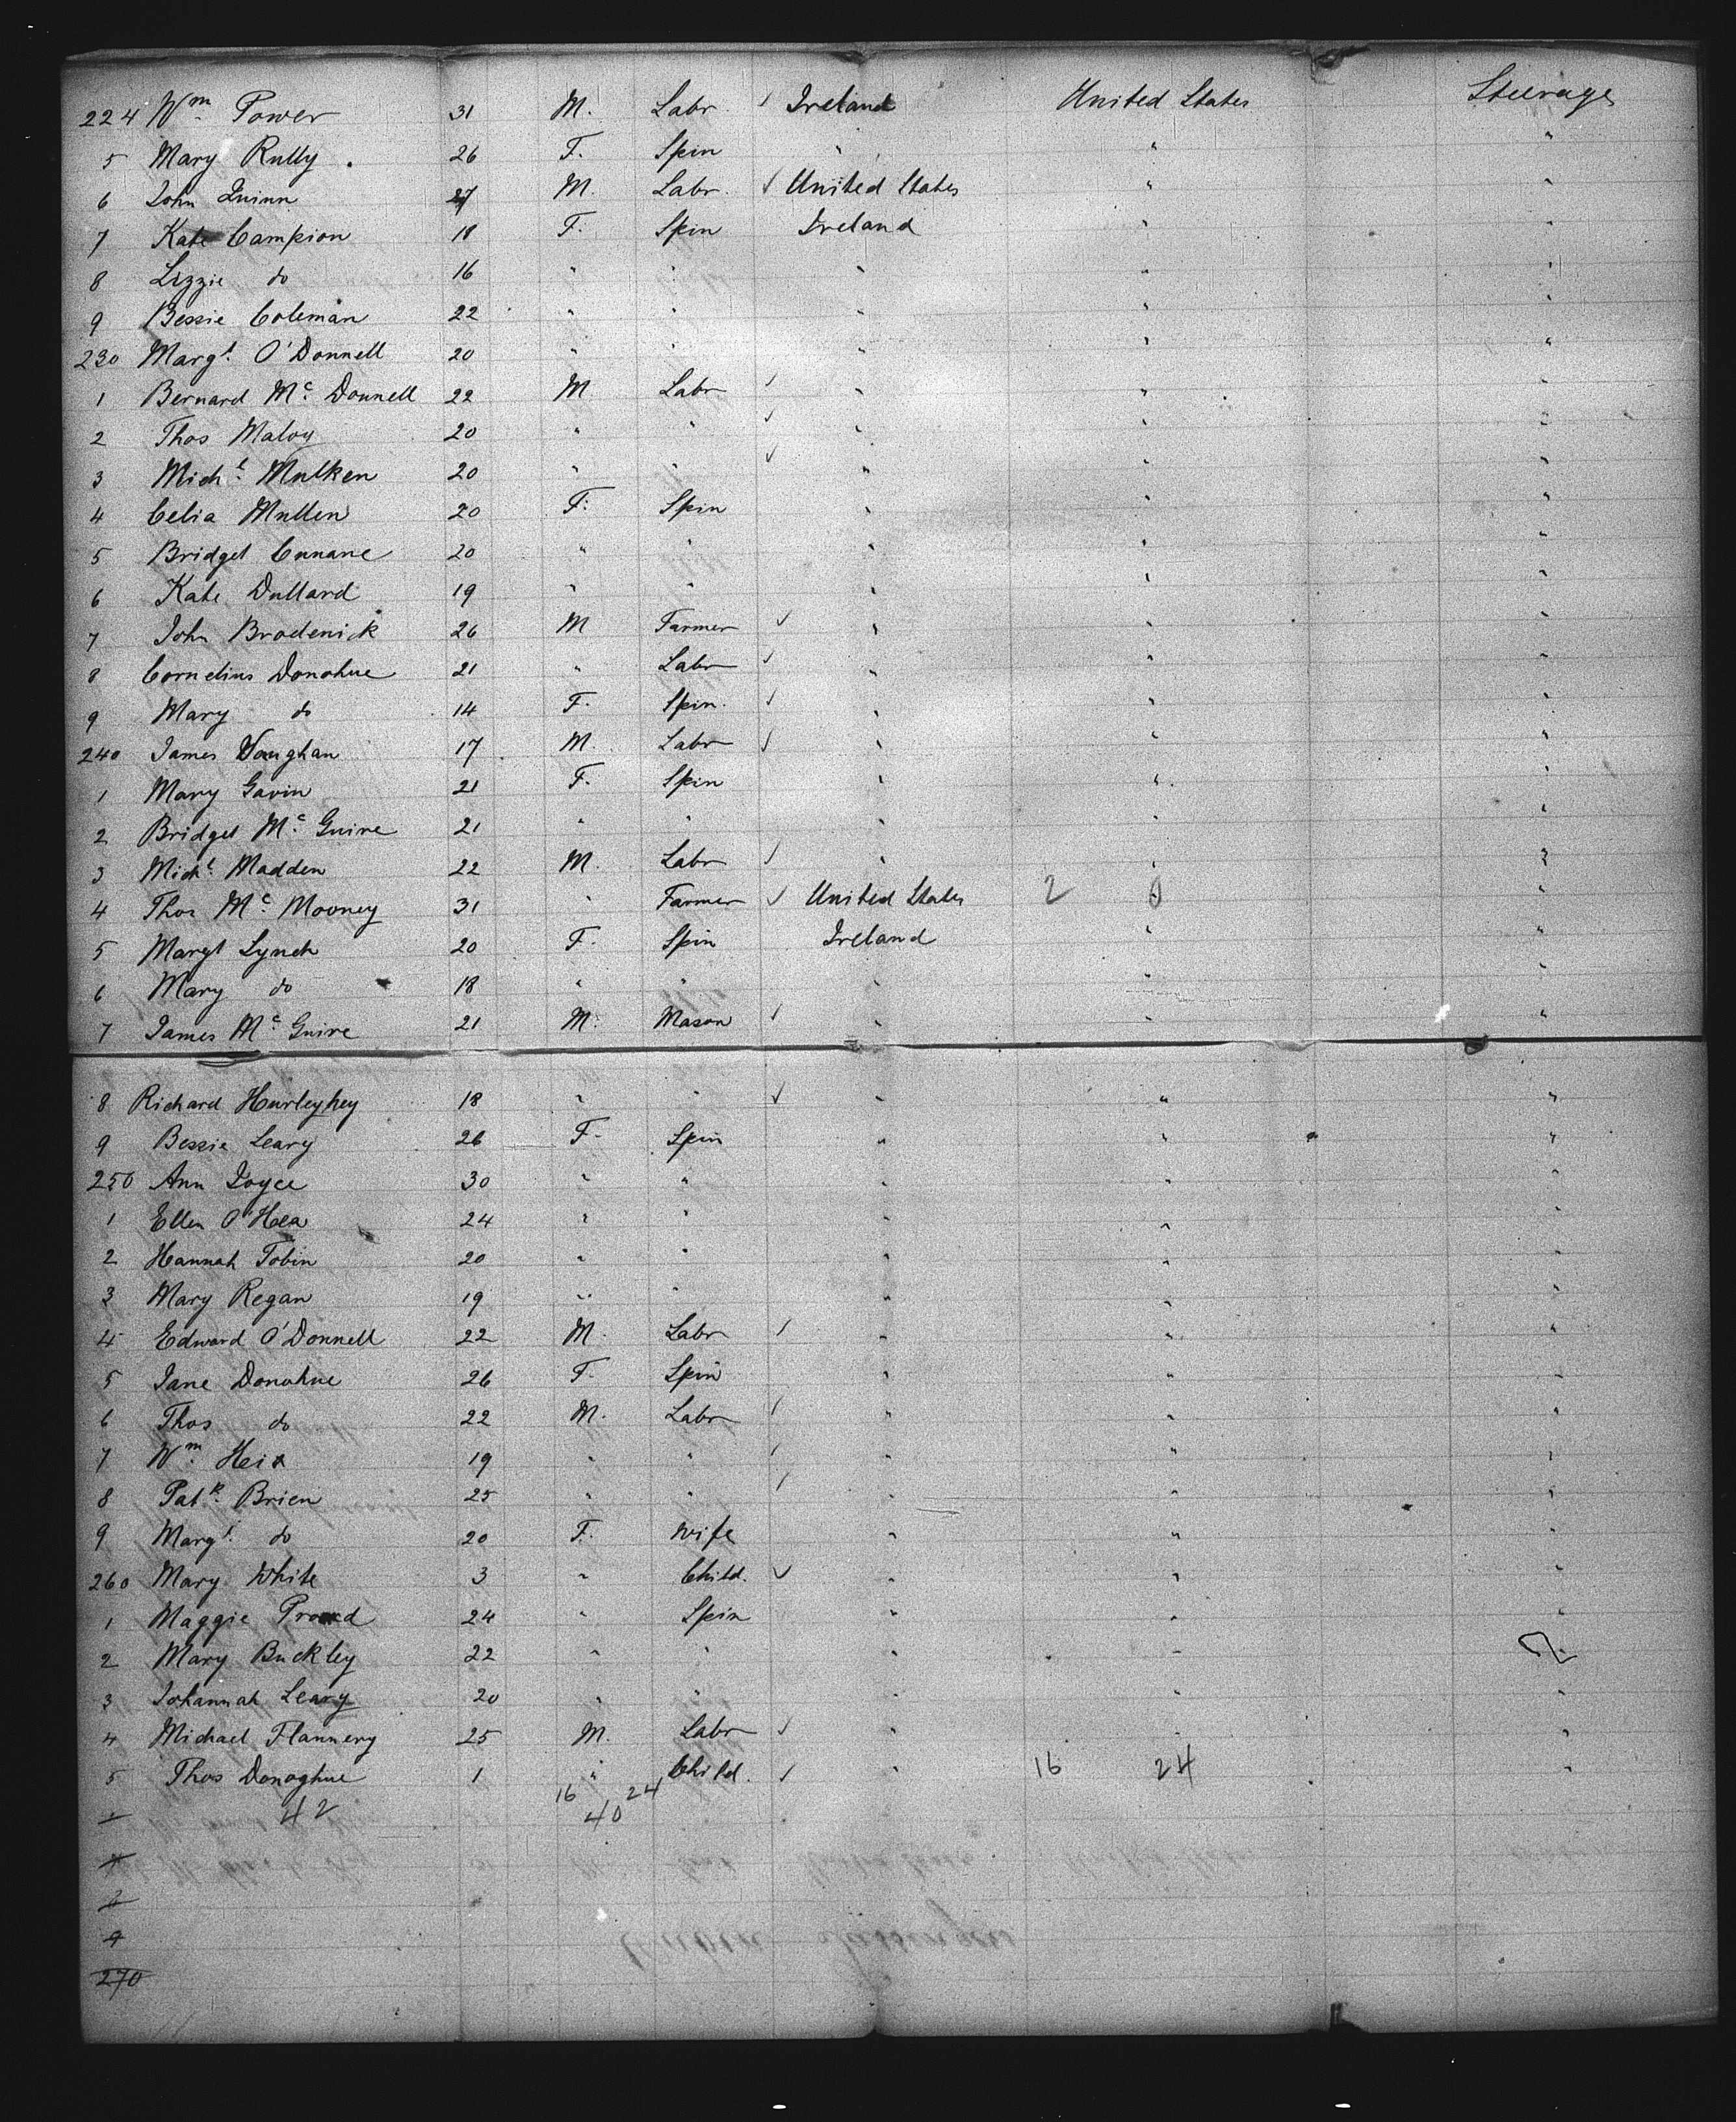 224 Wm Power 31 M. Labr. ✓ Ireland United States Steerage
5 Mary Rully 26 F. Spin " " "
6 John Quinn 27 M. Labr. ✓ United States " "
7 Kate Campion 18 F. Spin Ireland " "
8 Lizzie do 16 " " " " "
9 Bessie Coleman 22 " " " " "
230 Margt. O'Donnell 20 " " " " "
1 Bernard Mc Donnell 22 M Labr ✓ " " "
2 Thos Maloy 20 " " ✓ " " "
3 Michl. Mulken 20 " " ✓ " " "
4 Celia Mullen 20 F. Spin " " "
5 Bridget Cunnane 20 " " " " "
6 Kate Dullard 19 " " " " "
7 John Broderick 26 M Farmer ✓ " " "
8 Cornelius Donohue 21 " Labr ✓ " " "
9 Mary do 14 F. Spin. ✓ " " "
240 James Vaughan 17 M. Labr ✓ " " "
1 Mary Gavin 21 F. Spin " " "
2 Bridget Mc Guire 21 " " " " "
3 Michl. Madden 22 M. Labr ✓ " " "
4 Thos Mc Mooney 31 " Farmer ✓ United States 2 0 "
5 Margt Lynch 20 F. Spin Ireland " "
6 Mary do 18 " " " " "
7 James Mc Guire 21 M. Mason ✓ " " "
8 Richard Hurleyhey 18 " " ✓ " " "
9 Bessie Leary 26 F. Spin " " "
250 Ann Joyce 30 " " " " "
1 Ellen O'Hea 24 " " " " "
2 Hannah Tobin 20 " " " " "
3 Mary Regan 19 " " " " "
4 Edward O'Donnell 22 M. Labr ✓ " " "
5 Jane Donohue 26 F. Spin " " "
6 Thos do 22 M. Labr ✓ " " "
7 Wm. 19 " " ✓ " " "
8 Patk. Brien 25 " " ✓ " " "
9 Margt. do 20 F. Wife " " "
260 Mary White 3 " Child. ✓ " " "
1 Maggie 24 " Spin " " "
2 Mary Buckley 22 " " " " "
3 Johannah Leary 20 " " " " "
4 Michael Flannery 25 M. Labr ✓ " " "
5 Thos Donoghue 1 " Child. ✓ 16 24 "
16 24
42 40
270